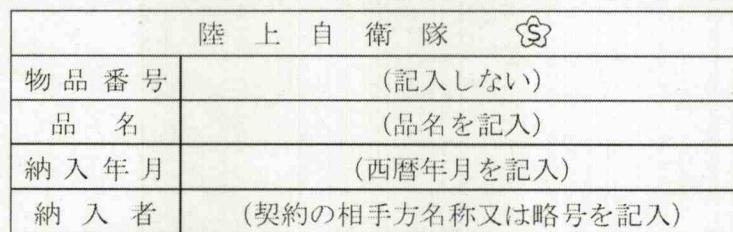 陸上自衛隊 S
物品番号 (記入しない)
品名 (品名を記入)
納入年月 (西暦年月を記入)
納入者 (契約の相手方名称又は略号を記入)